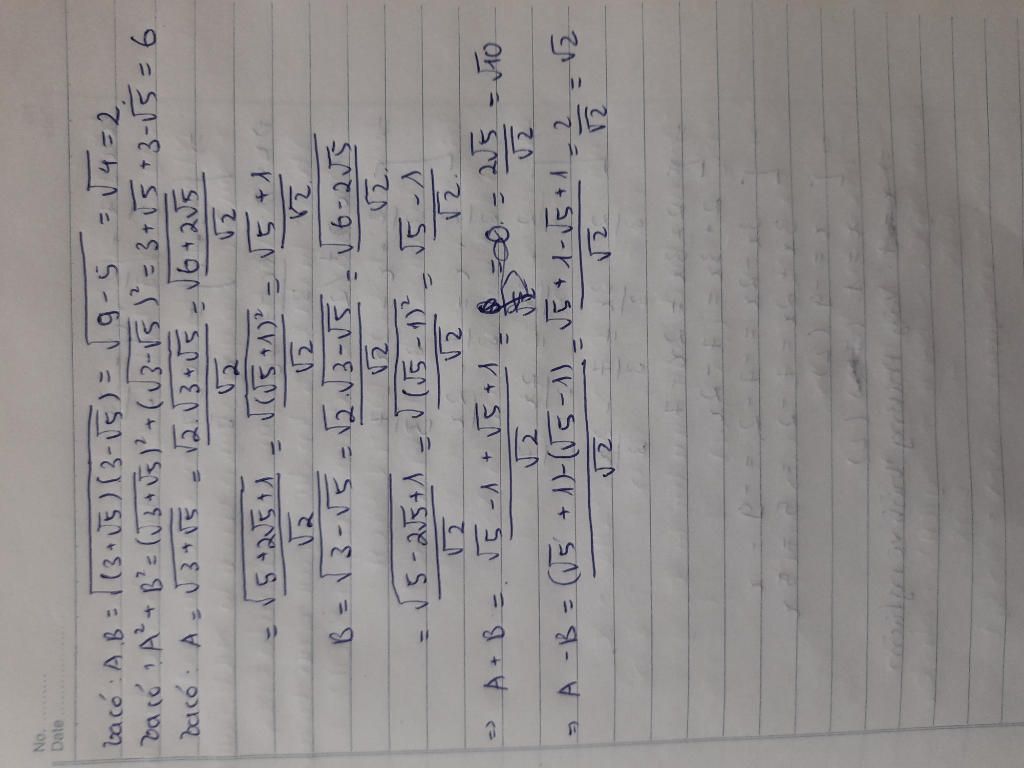 No. ............
Date ............
ta có : A.B = √((3+√5)(3-√5)) = √(9-5) = √4 = 2
ta có : A² + B² = (√(3+√5))² + (√(3-√5))² = 3+√5 + 3-√5 = 6
ta có : A = √(3+√5) = (√2.√(3+√5))/√2 = √(6+2√5)/√2
= √(5+2√5+1)/√2 = √((√5+1)²)/√2 = (√5+1)/√2
B = √(3-√5) = (√2.√(3-√5))/√2 = √(6-2√5)/√2
= √(5-2√5+1)/√2 = √((√5-1)²)/√2 = (√5-1)/√2.
=> A+B = (√5-1+√5+1)/√2 = 2√5/√2 = √10
=> A-B = ((√5+1)-(√5-1))/√2 = (√5+1-√5+1)/√2 = 2/√2 = √2